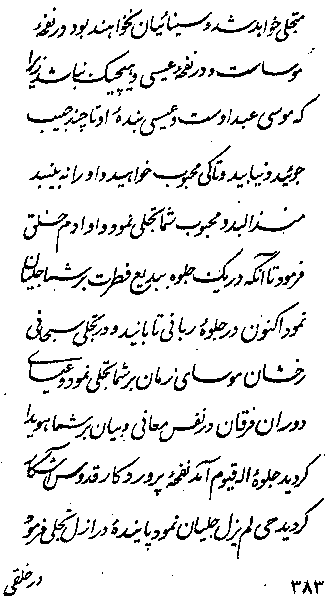 متجلی خواهد شد و سینائیان نخواهند بود در نفخهٔ
موسی است و در نفخهٔ عیسی و هیچیک نباشد زیرا
که موسی عبد اوست و عیسی بندهٔ او تا چند حبیب
جوئید و نیابید و تا کی محبوب خواهید و او را نه بینید
منذ البدو محبوب شما تجلی نمود و او آدم خلق
فرمود تا آنکه در یک جلوه ببدیع فطرت بر شما تجلیان
نمود اکنون در جلوهٔ ربانی تابانید و در تجلی سبحانی
رخشان موسای زمان بر شما تجلی نمود و عیسای
دوران فرقان در نفس معانی و بیان بر شما هویدا
گردید جلوهٔ اله قیوم آمد نفحهٔ پروردگار قدوس آشکار
گردید حی لم یزل جلیان نمود پایندهٔ در ازل تجلی فرمود
در خلقی
۳۸۳